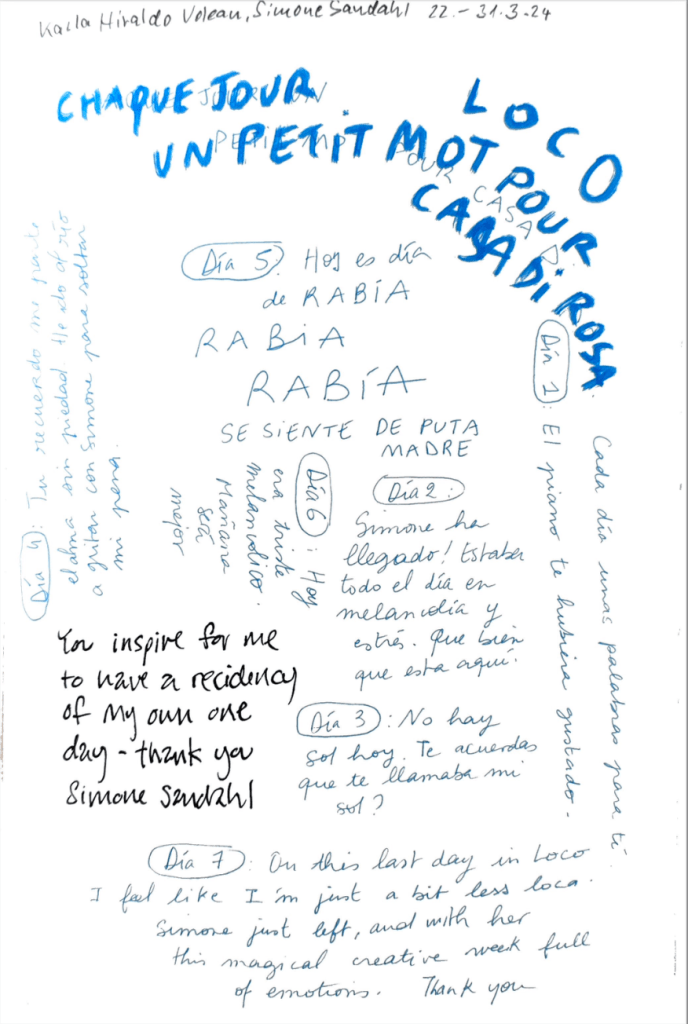 Karla Hiraldo Voleau, Simone Sandahl 22.-31.3.24
CHAQUE JOUR
UN PETIT MOT POUR
CASA DI ROSA
LOCO
Día 1: El piano te hubiera gustado.
Cada día unas palabras para ti.
Día 2:
Simone ha
llegado! Estaba
todo el día en
melancolía y
estrés. Que bien
que esta aquí.
Día 3: No hay
sol hoy. Te acuerdas
que te llamaba mi
sol?
Día 4: Tu recuerdo me parte
el alma sin piedad. He ido al río
a gritar con Simone para soltar
mi pena.
Día 5: Hoy es día
de RABÍA
RABiA
RABÍA
SE SIENTE DE PUTA
MADRE
Día 6: Hoy
era triste
melancolico.
Mañana
será
mejor
You inspire for me
to have a recidency
of my own one
day - thank you
Simone Sandahl
Día 7: On this last day in Loco
I feel like I'm just a bit less loca.
Simone just left, and with her
this magical creative week full
of emotions. Thank you